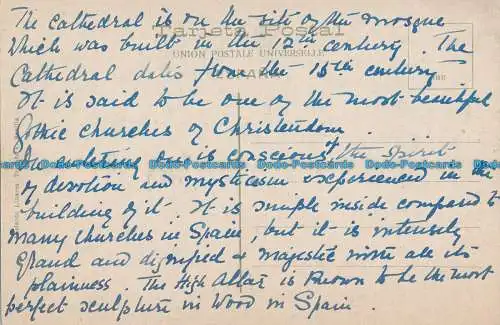 The cathedral is on the site of the mosque
Tarjeta Postal
which was built in the 12th century. The
UNION POSTALE UNIVERSELLE
Cathedral dates from the 15th century.
It is said to be one of the most beautiful
Gothic churches of Christendom.
On entering one is conscious of the spirit
Dodo-Postcards Dodo-Postcards Dodo-Postcards Dodo-Postcards Dodo-Postcards
of devotion and mysticism experienced in the
building of it. It is simple inside compared to
many churches in Spain, but it is intensely
grand and dignified & majestic with all its
plainness. The High Altar is known to be the most
perfect sculpture in wood in Spain.